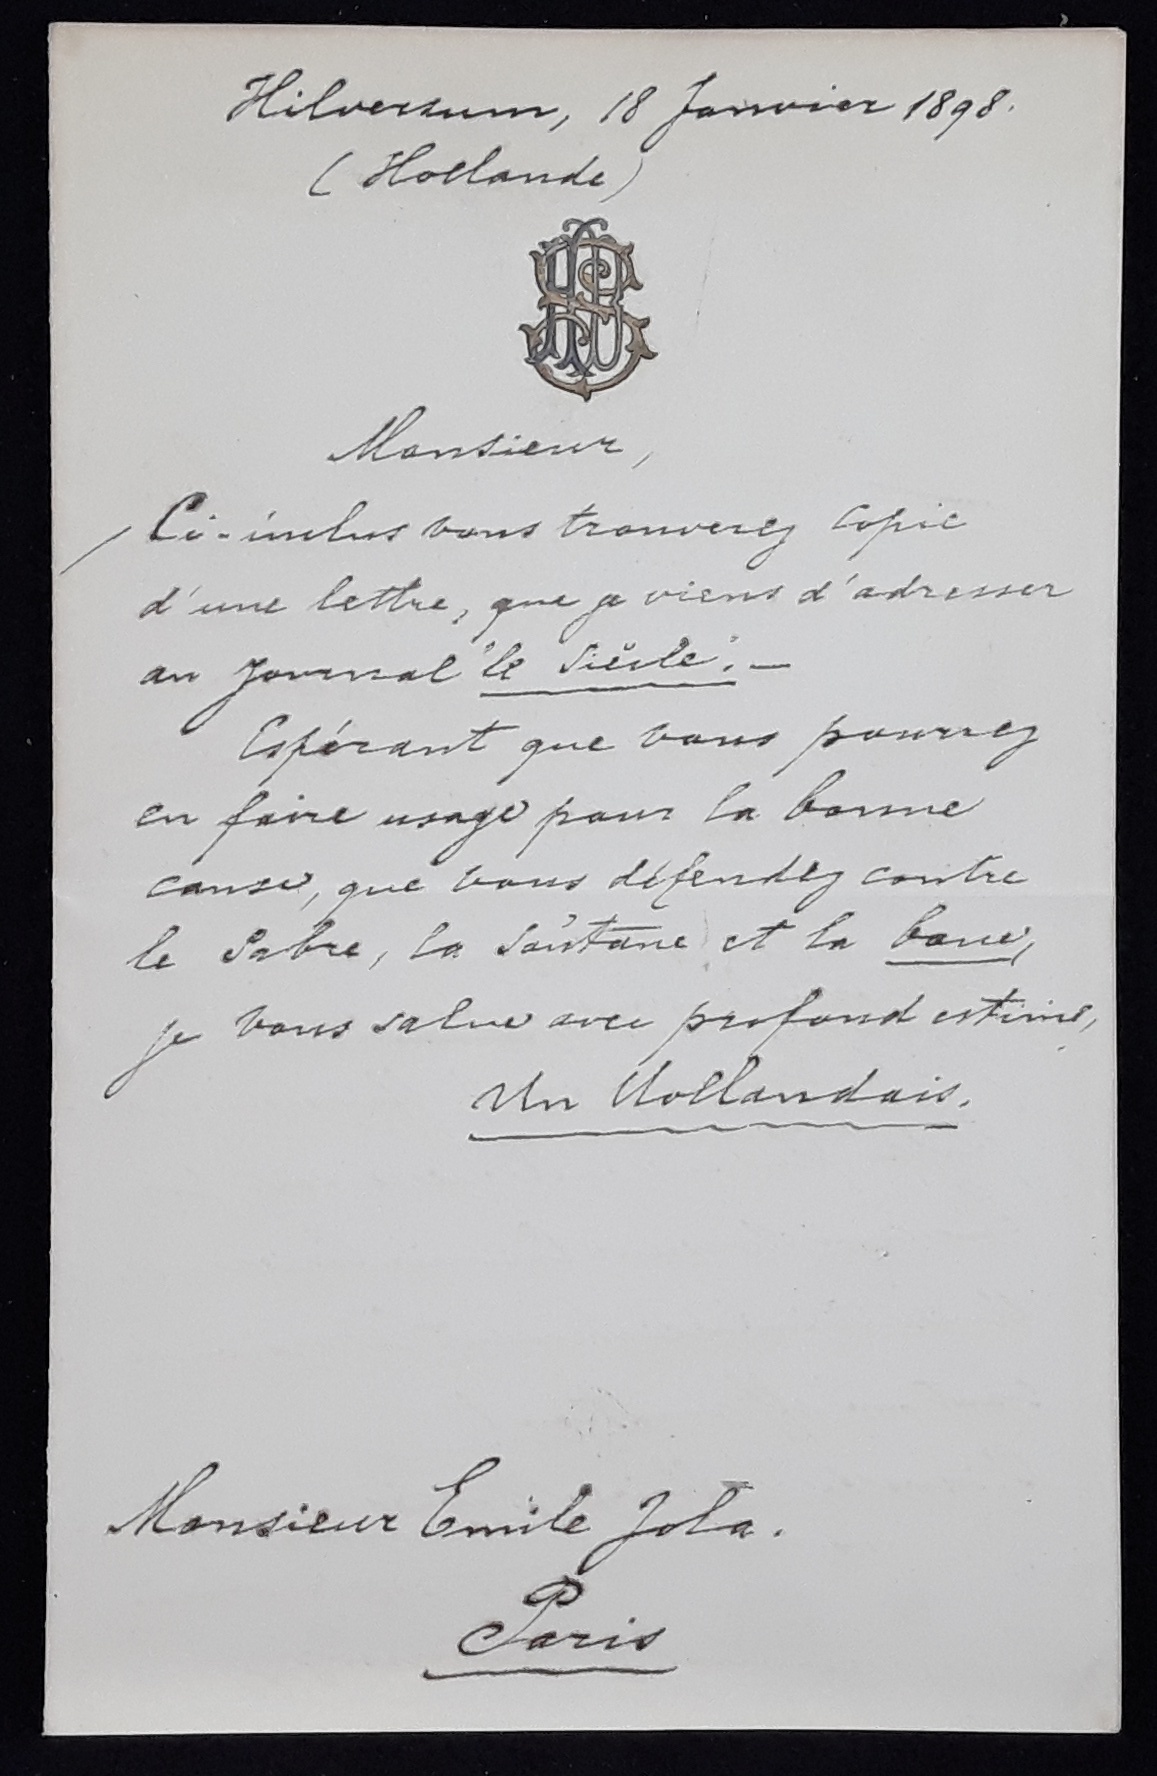 Hilversum, 18 Janvier 1898.
(Hollande)
Monsieur,
Ci-inclus vous trouverez copie
d'une lettre, que je viens d'adresser
au Journal "le Siècle". —
Espérant que vous pourrez
en faire usage pour la bonne
cause, que vous défendez contre
le Sabre, la Soutane et la boue,
je vous salue avec profond estime,
Un Hollandais.
Monsieur Emile Zola.
Paris